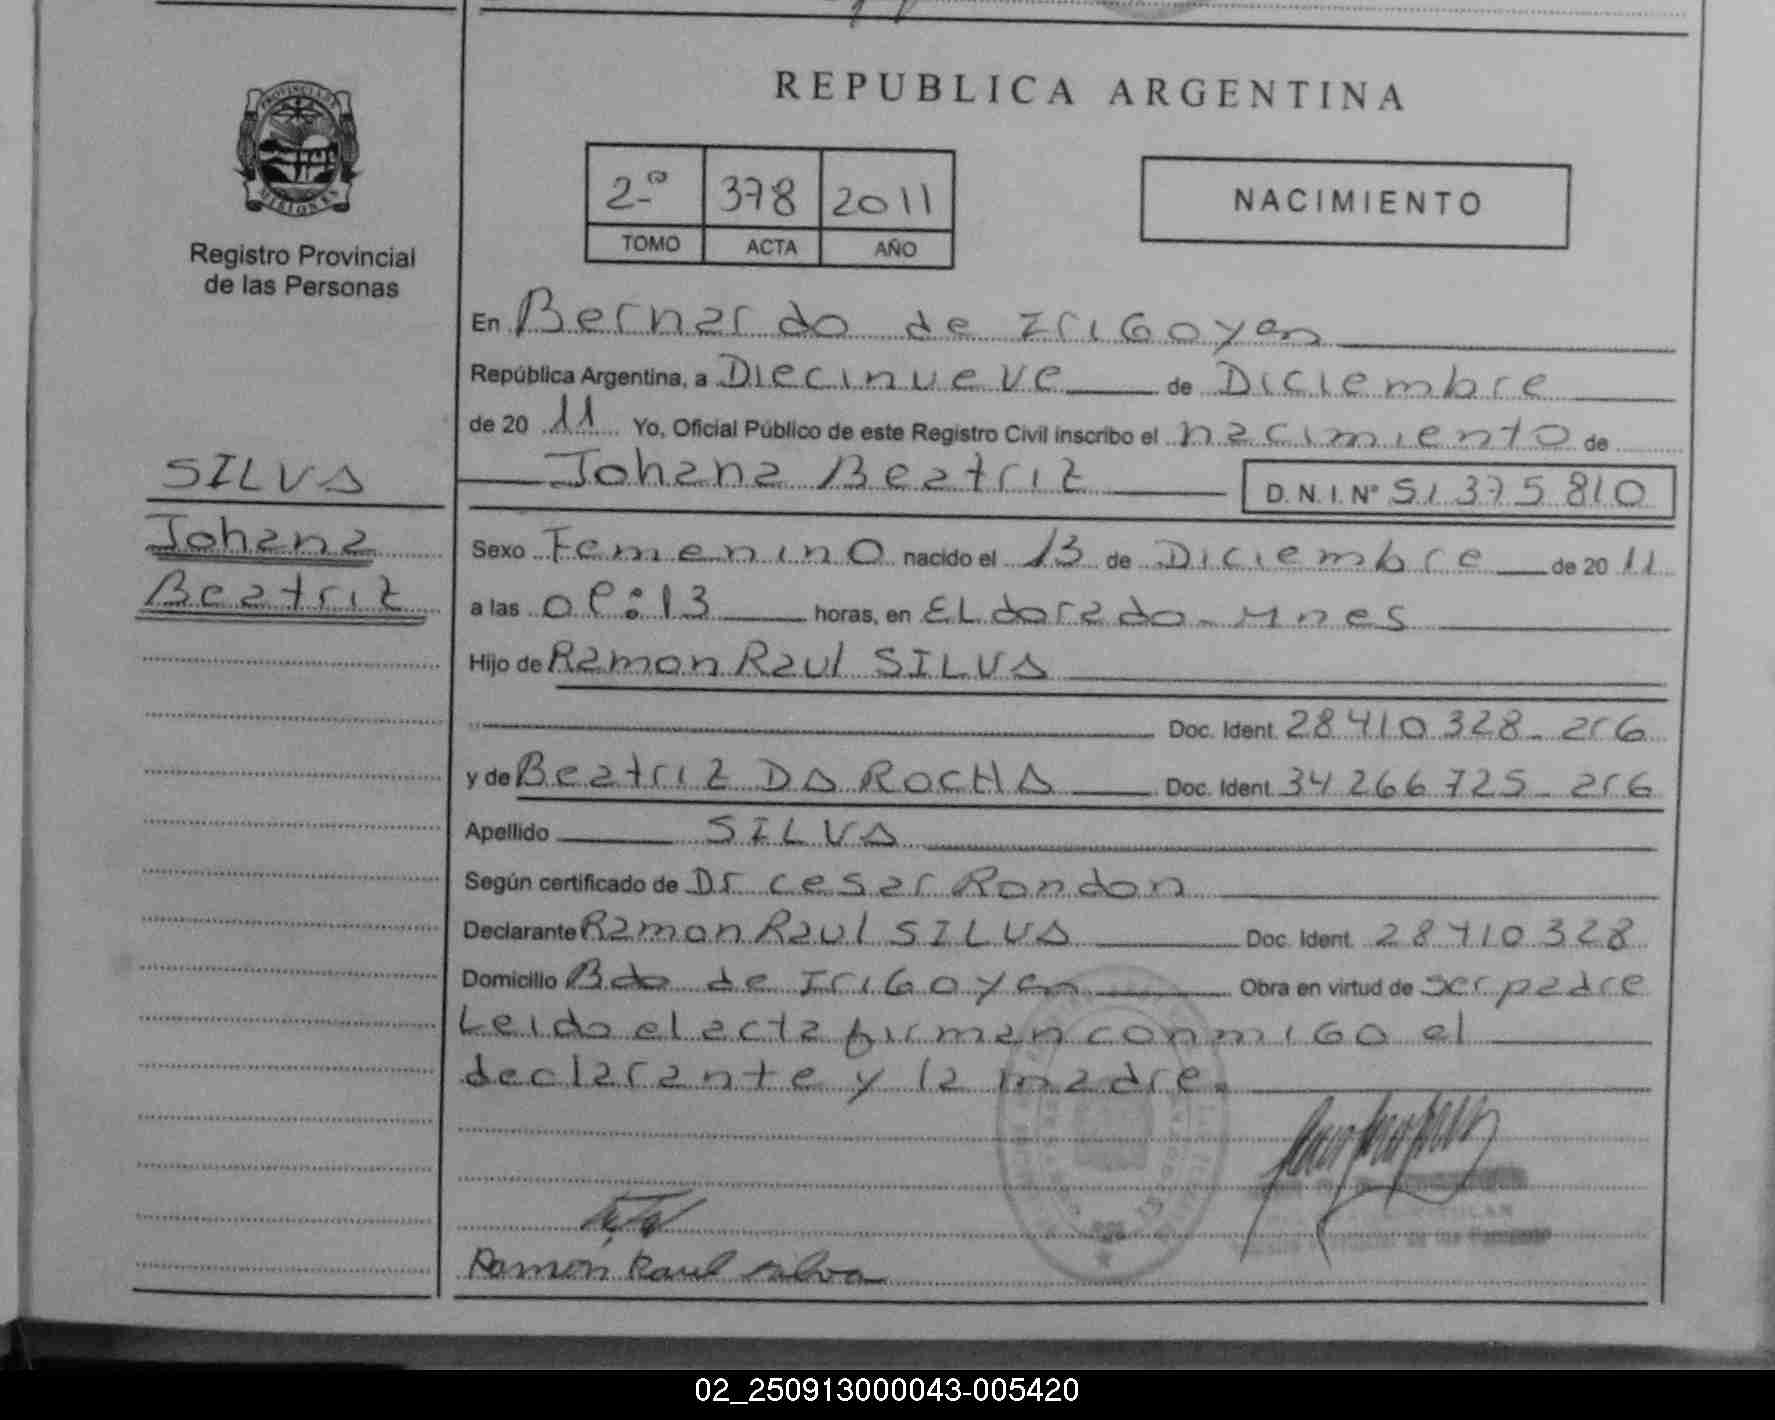 REPUBLICA ARGENTINA
PROVINCIA DE
MISIONES
Registro Provincial
de las Personas
2º 378 2011
TOMO ACTA AÑO
NACIMIENTO
En Bernardo de IriGoyen
República Argentina, a Diecinueve de Diciembre
de 20 11 Yo, Oficial Público de este Registro Civil inscribo el nacimiento de
Johana Beatriz D.N.I.Nº 51375810
SILVA
Johana
Beatriz
Sexo Femenino nacido el 13 de Diciembre de 20 11
a las horas, en ELdorado - Mnes
Hijo de Ramon Raul SILVA
Doc. Ident. 28410328- arG
y de Beatriz DA ROCHA Doc. Ident. 34266725- arG
Apellido SILVA
Según certificado de Dr cesar Rondon
Declarante Ramon Raul SILVA Doc. Ident. 28410328
Domicilio Bdo de IriGoyen Obra en virtud de ser padre
Leido el acta firman conmiGo el
declarante y la madre.
Ramón Raul Silva
02_250913000043-005420